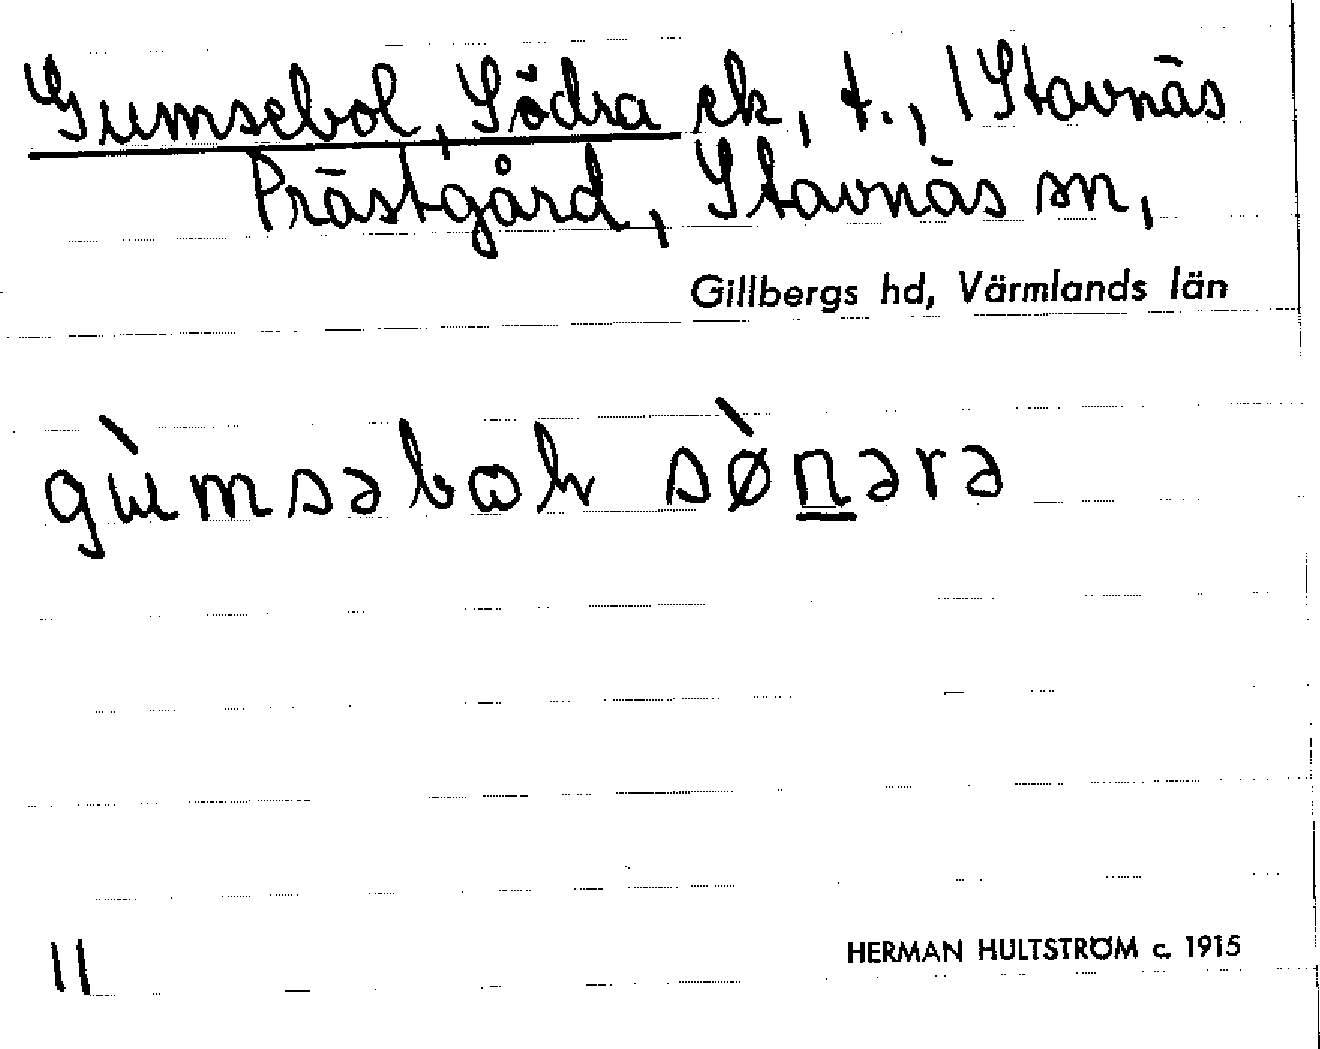 Gumsebol, Södra ek, t., 1 Stavnäs
Prästgård, Stavnäs sn,
Gillbergs hd, Värmlands län
gɯ̀msəbɷɫ sø̀n̲ərə
11
HERMAN HULTSTRÖM c. 1915